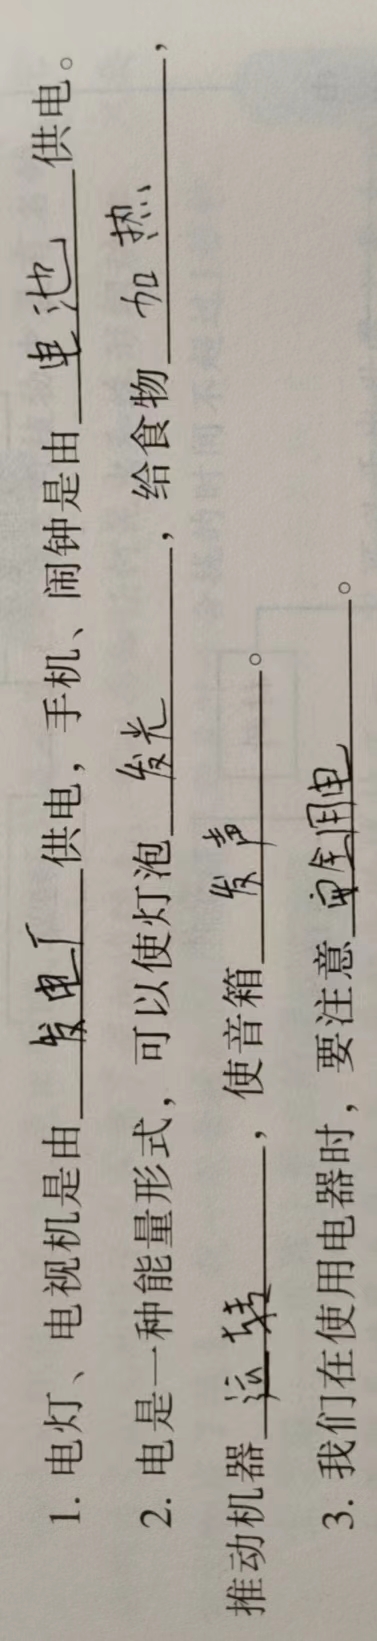 1. 电灯、电视机是由发电厂供电，手机、闹钟是由电池供电。
2. 电是一种能量形式，可以使灯泡发光，给食物加热，
推动机器运转，使音箱发声。
3. 我们在使用电器时，要注意安全用电。